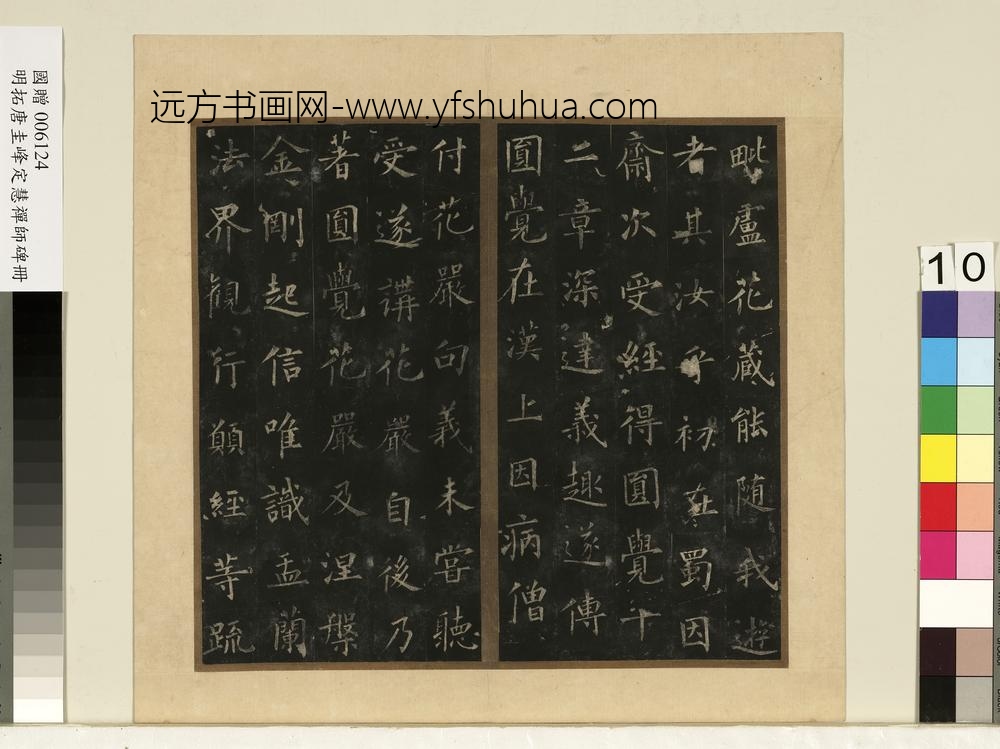 远方书画网-www.yfshuhua.com
國贈 006124
明拓唐圭峰定慧禪師碑冊
10
毗盧花藏能随我遊
者其汝乎初在蜀因
齋次受經得圓覺十
二章深達義趣遂傳
圓覺在漢上因病僧
付花嚴句義未嘗聽
受遂講花嚴自後乃
著圓覺花嚴及涅槃
金剛起信唯識盂蘭
法界觀行願經等疏